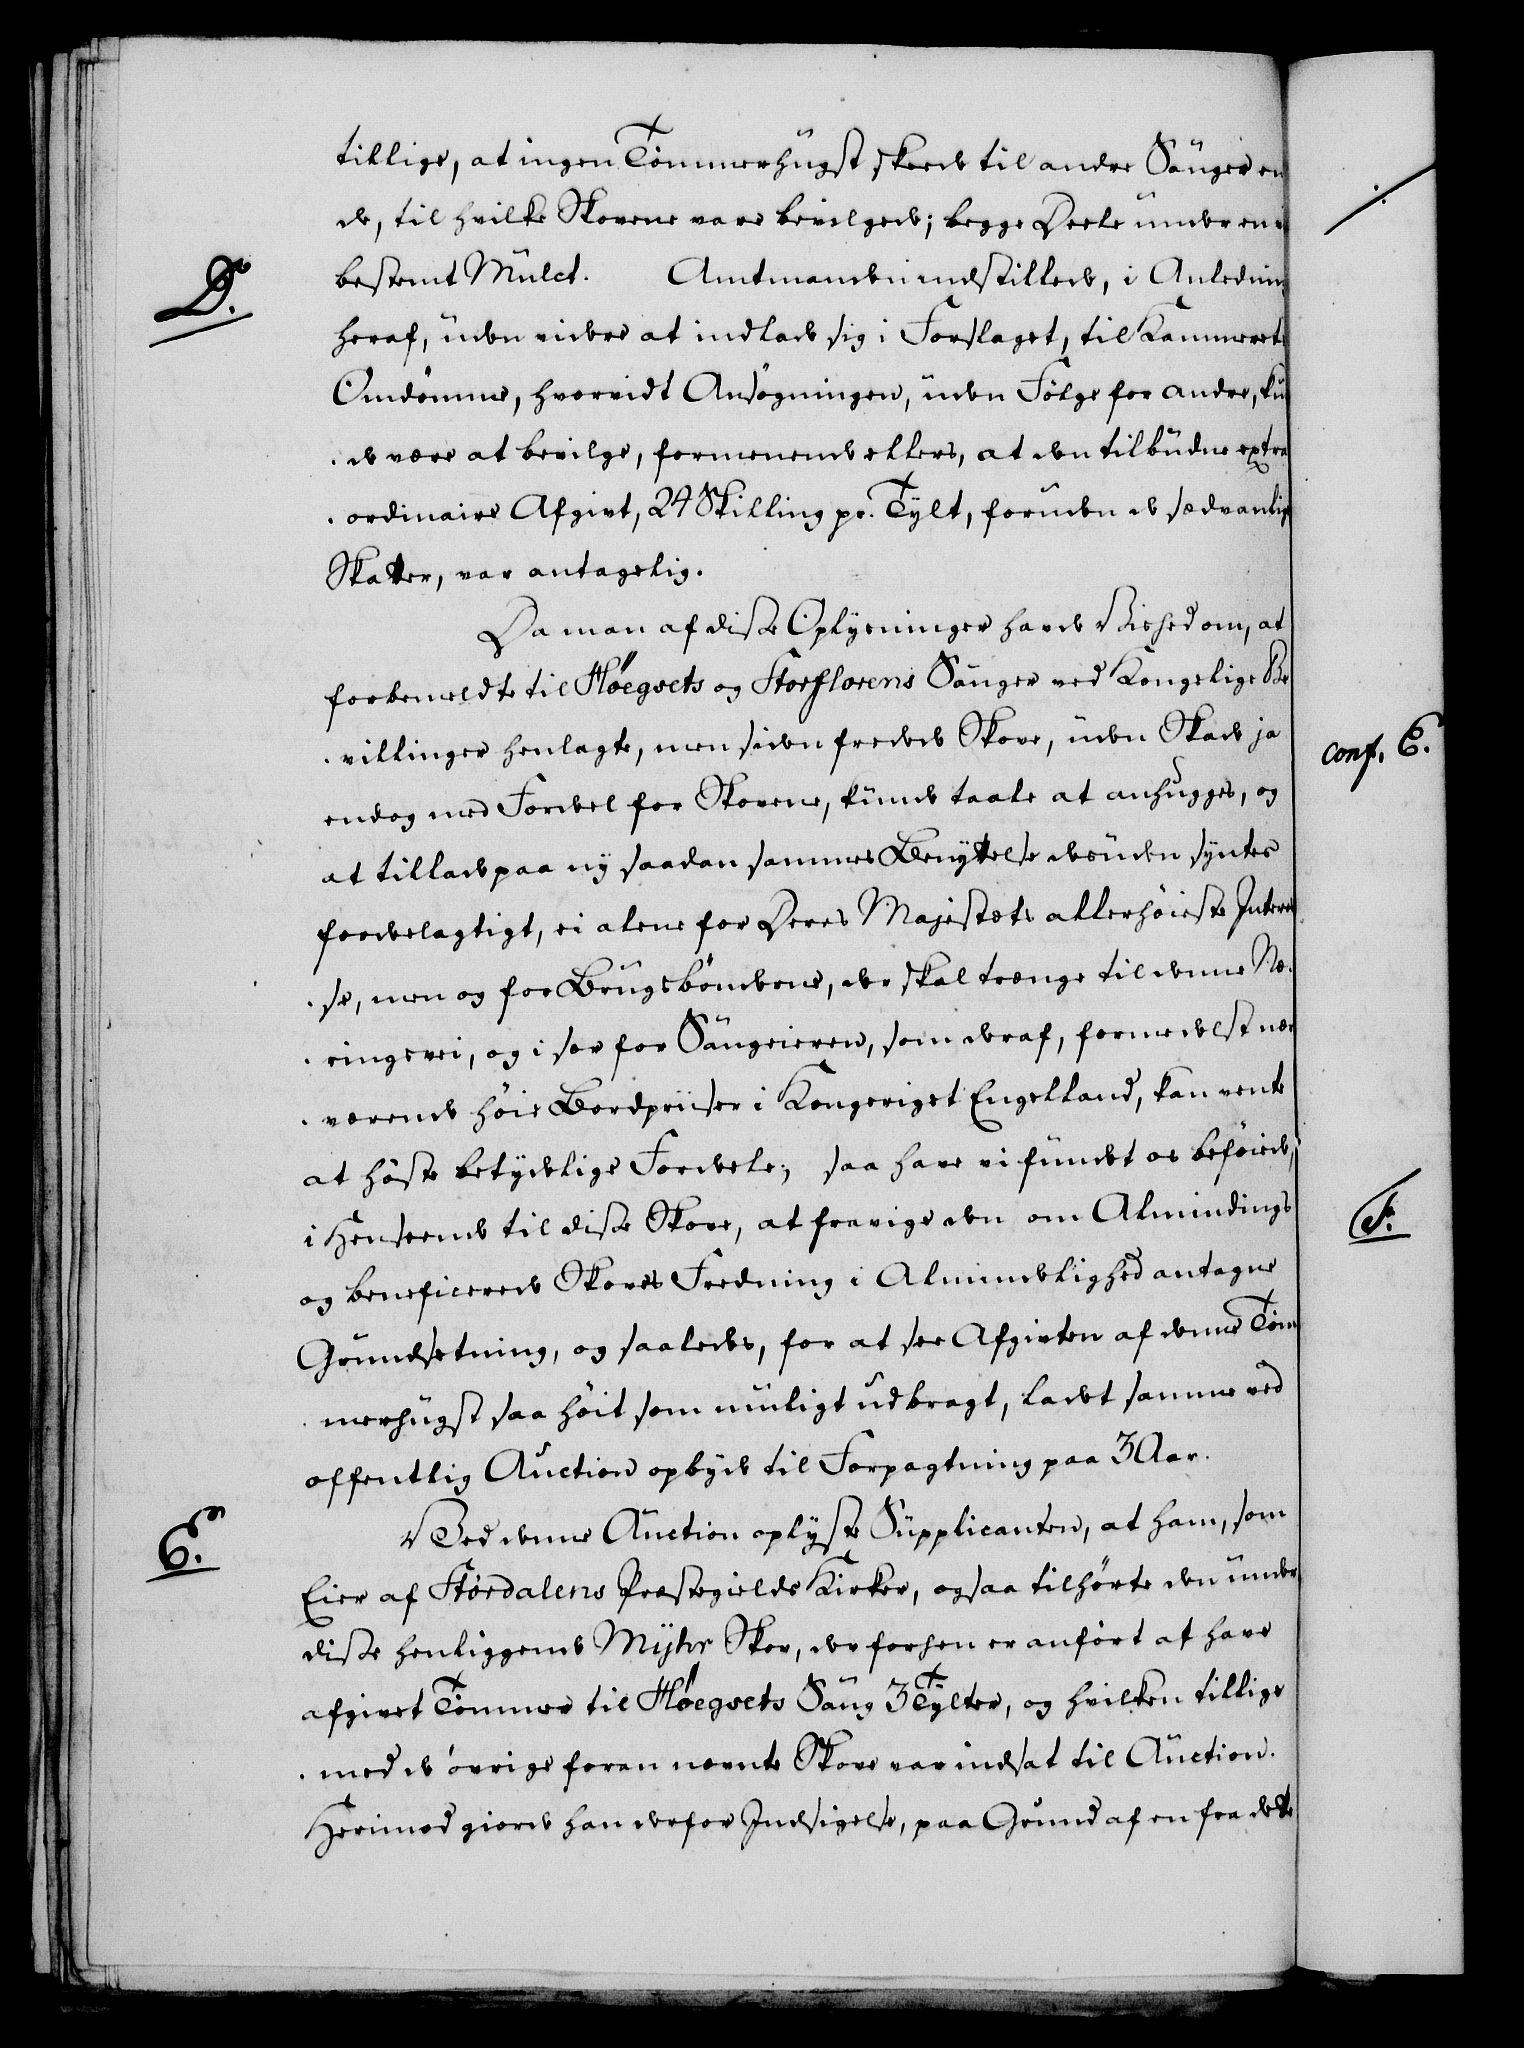 tillige, at ingen Tømmerhugst skeede til andre Sauger en
de, til hvilke Skovene vare bevilgede; begge Deele under en vis
D. bestemt Mulct. Amtmanden indstillede, i Anledning
heraf, uden videre at indlade sig i Forslaget, til Kammerets
Omdømme, hvorvidt Ansøgningen, uden Følge for andre, kun
de være at bevilge, formenende ellers, at den tilbudne extra
ordinaire Afgivt, 24 Skilling pr. Tylt, foruden de sædvanlige
Skatter, var antagelig.
Da man af disse Oplysninger havde Vished om, at
forbemeldte til Høegsets og Storflorens Sauger ved Kongelige Be
villinger henlagte, men siden fredede Skove, uden Skade ja
conf. E.
endog med Fordeel for Skovene, kunde taale at anhugges, og
at tillade paa ny saadan sammes Benyttelse desuden syntes
fordelagtigt, ei alene for Deres Majestæts allerhøieste Interes
se, men og for Brugsbønderne, der skal trænge til denne Næ
ringsvei, og i sær for Saugeieren, som deraf, formedelst nær
værende høie Bordpriiser i Kongeriget Engelland, kan vente
at høste betydelige Fordele; saa have vi fundet os beføiede,
i Henseende til disse Skove, at fravige den om Almindings
F.
og beneficerede Skoves Fredning i Almindelighed antagne
Grundsetning, og saaledes, for at see Afgivten af denne Tøm
merhugst saa høit som muligt udbragt, ladet samme ved
offentlig Auction opbyde til Forpagtning paa 3 Aar.
E. Ved denne Auction oplyste Supplicanten, at ham, som
Eier af Størdalens Præstegields Kirker, ogsaa tilhørte den under
disse henliggende Myhr Skov, der forhen er anført at have
afgivet Tømmer til Høegsets Saug 3 Tylter, og hvilken tillige
med de øvrige foran nævnte Skove var indsat til Auction.
Herimod giorde han derfor Indsigelse, paa Grund af en fra dette